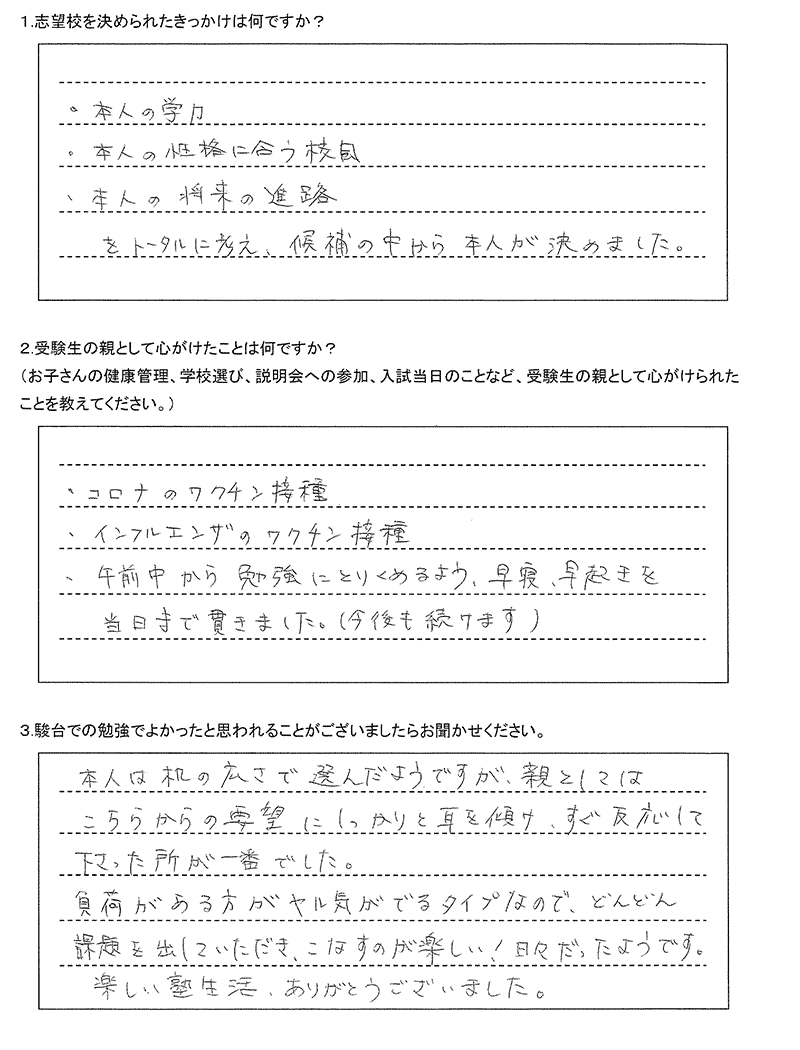 1.志望校を決められたきっかけは何ですか？
・本人の学力
・本人の性格に合う校風
・本人の将来の進路
をトータルに考え、候補の中から本人が決めました。
2.受験生の親として心がけたことは何ですか？
（お子さんの健康管理、学校選び、説明会への参加、入試当日のことなど、受験生の親として心がけられた
ことを教えてください。）
・コロナのワクチン接種
・インフルエンザのワクチン接種
・午前中から勉強にとりくめるよう、早寝、早起きを
当日まで貫きました。(今後も続けます)
3.駿台での勉強でよかったと思われることがございましたらお聞かせください。
本人は机の広さで選んだようですが、親としては
こちらからの要望にしっかりと耳を傾け、すぐ反応して
下さった所が一番でした。
負荷がある方がヤル気がでるタイプなので、どんどん
課題を出していただき、こなすのが楽しい！日々だったようです。
楽しい塾生活、ありがとうございました。